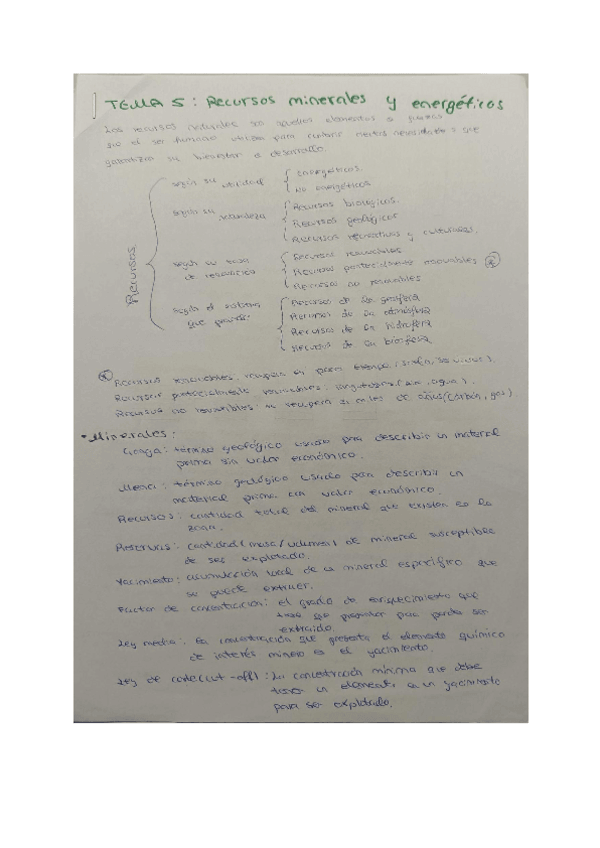 TEMA 5: Recursos minerales y energéticos
Los recursos naturales son aquellos elementos o
que el ser humano utiliza para cubrir ciertas necesidades y que
garantizan su bienestar o desarrollo.
Recursos
según su utilidad
Energéticos.
No energéticos
según su naturaleza
Recursos biológicos.
Recursos geológicos
Recursos recreativos y culturales.
según su tasa de renovación
Recursos renovables
Recursos potencialmente renovables *
Recursos no renovables
Según el sistema que
Recursos de la geosfera
Recursos de la atmósfera
Recursos de la hidrosfera
Recursos de la biosfera
* Recursos renovables:
Recursos potencialmente renovables: , agua).
Recursos no renovables: se recupera en miles de años (carbón, gas)
• Minerales:
Ganga: término geológico usado para describir un material
prima sin valor económico.
Mena: término geológico usado para describir un
material prima con valor económico.
Recursos: cantidad total del mineral que existen en la
zona.
Reservas: cantidad (masa/volumen) de mineral susceptible
de ser explotado.
Yacimiento: acumulación local de un mineral específico que
se puede extraer.
Factor de concentración: el grado de enriquecimiento que
tiene que presentar para poder ser
extraído.
Ley media: la concentración que presenta el elemento químico
de interés minero en el yacimiento.
Ley de corte (cut-off): La concentración mínima que debe
tener un elemento en un yacimiento
para ser explotado.